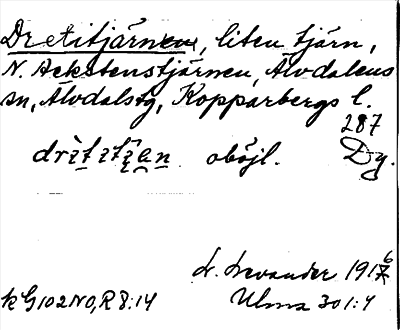 Dretitjärnen, liten tjärn,
N. Ackstenstjärnen, Älvdalens
sn, Älvdalstg, Kopparbergs l.
287
oböjl. Dy.
L. Levander 1916
kG102NO, R8:14 Ulma 301:4